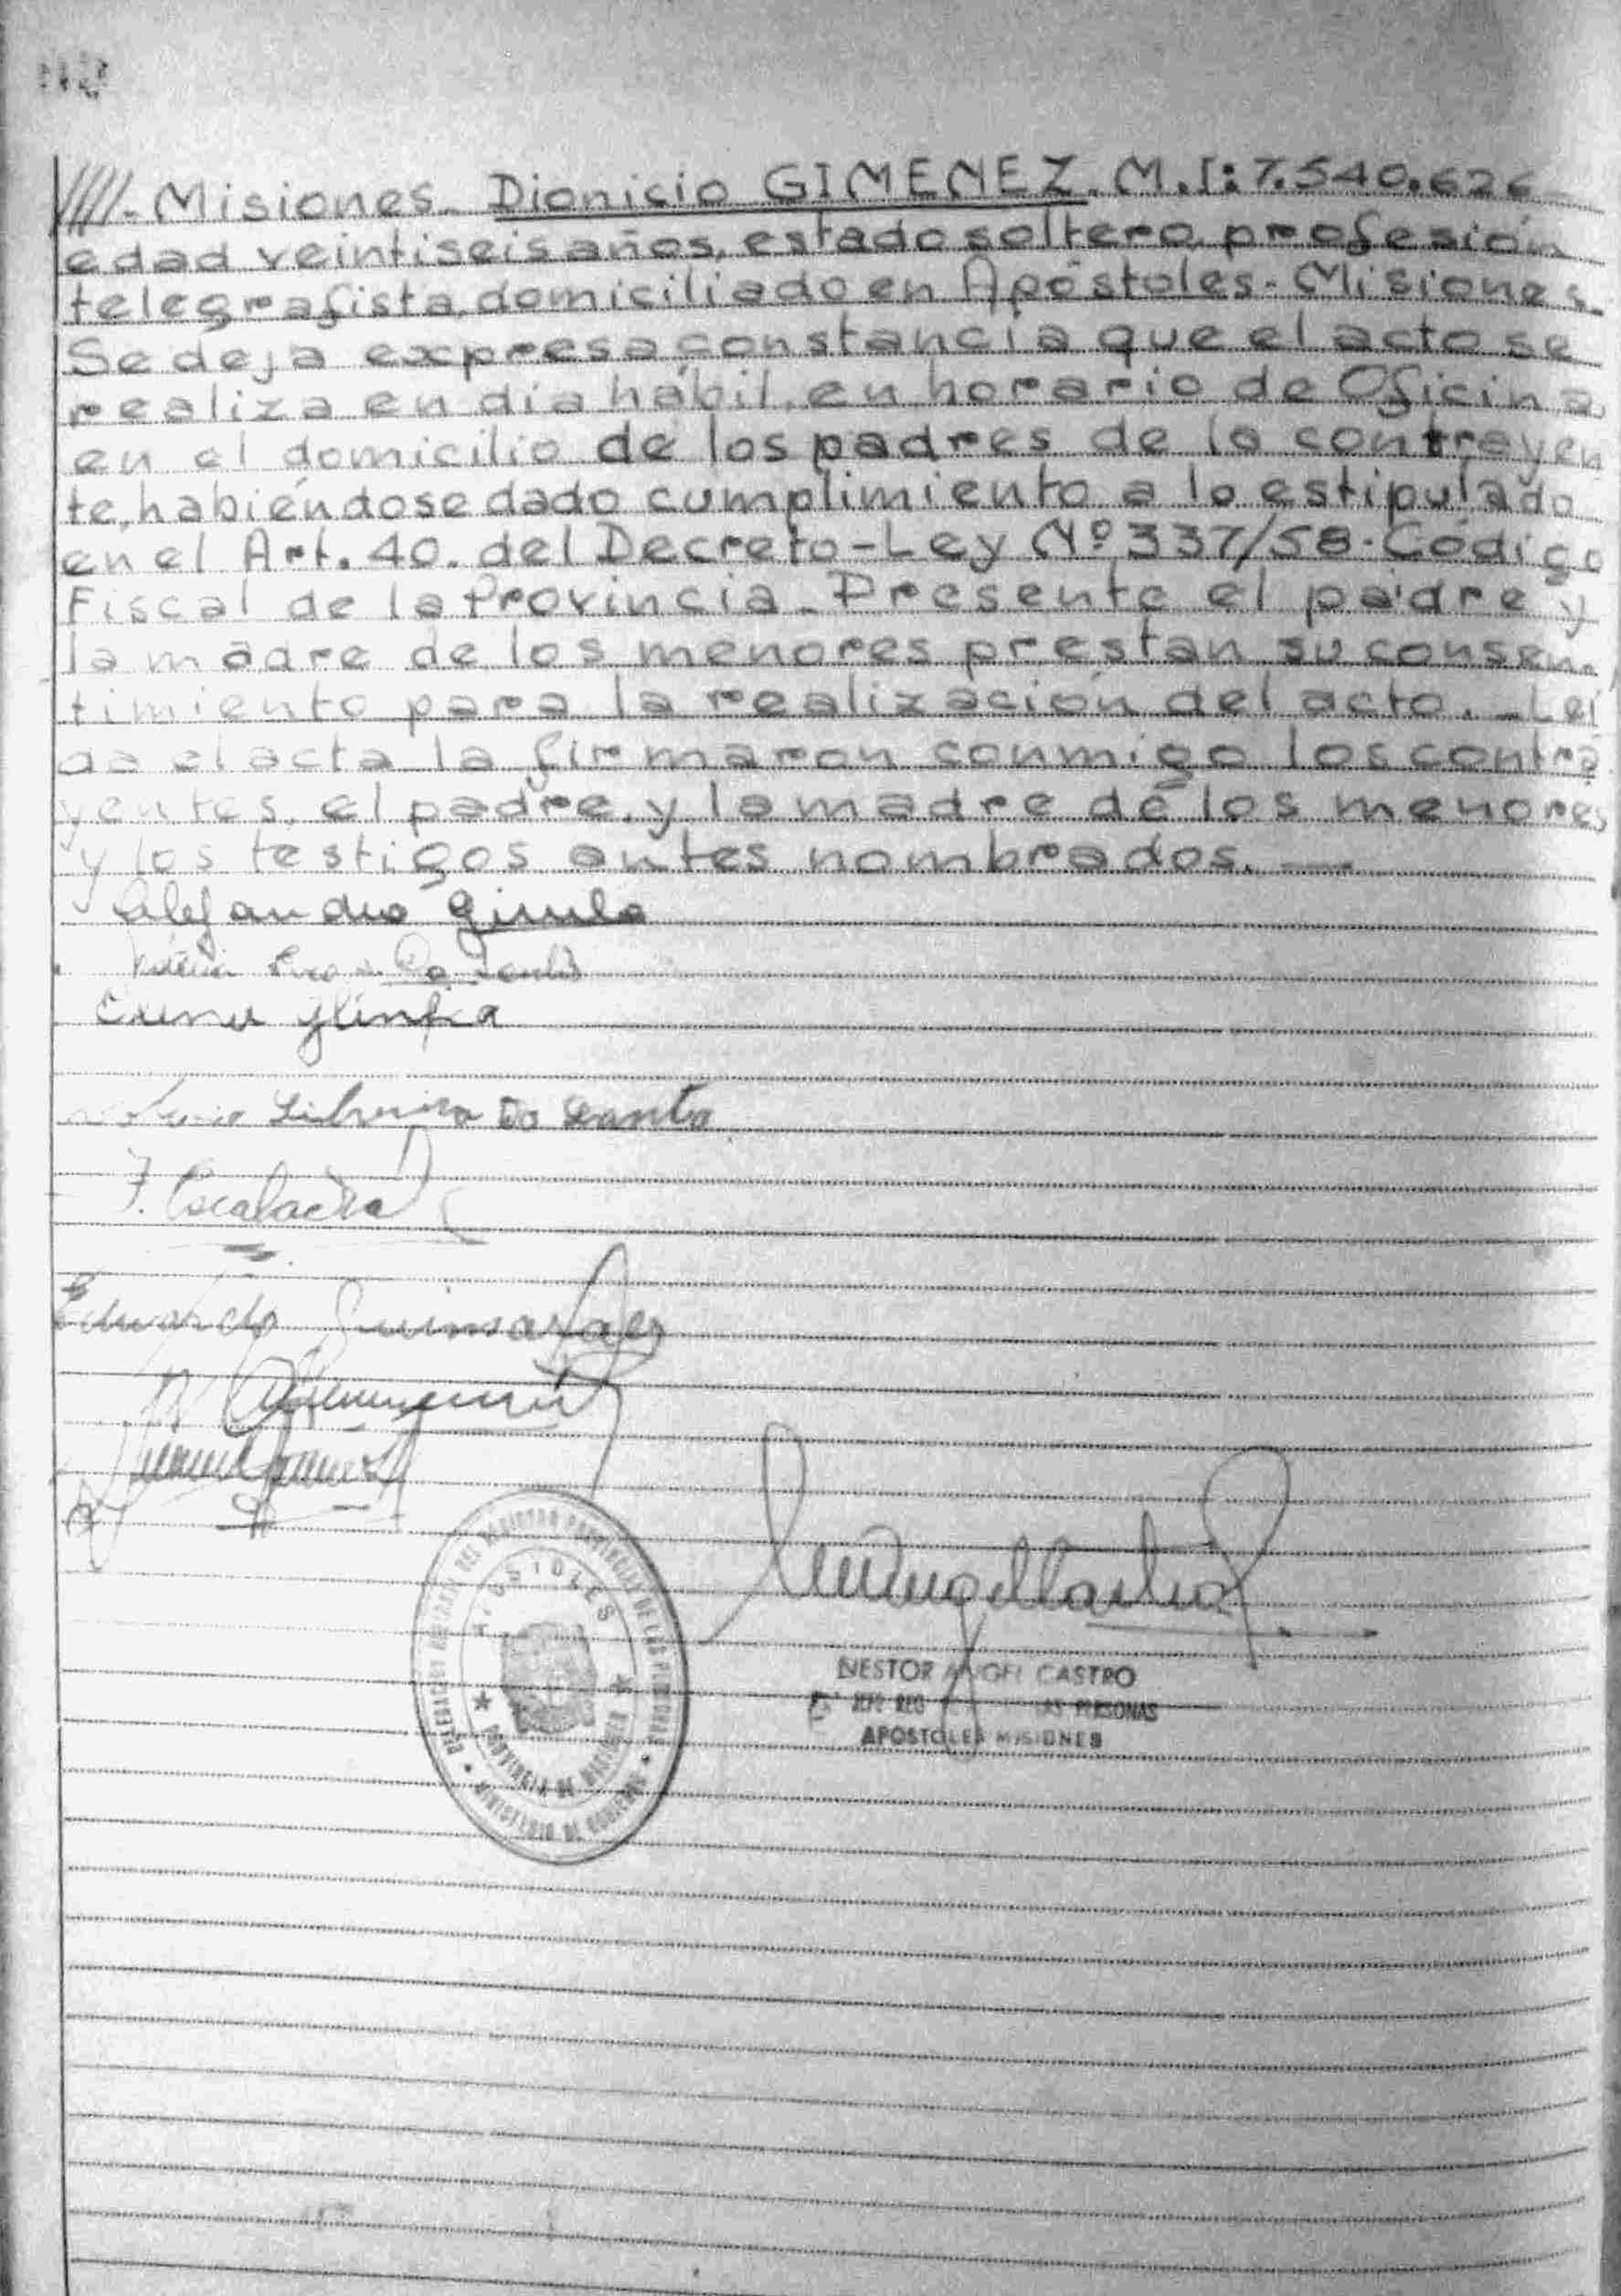 ////.-Misiones.- Dionicio GIMENEZ. M.I: 7.540.626
edad veintiseis años, estado soltero, profesión
telegrafista, domiciliado en Apóstoles- Misiones.
Se deja expresa constancia que el acto se
realiza en día hábil, en horario de Oficina
en el domicilio de los padres de la contrayen
te, habiéndose dado cumplimiento a lo estipulado
en el Art. 40. del Decreto-Ley Nº 337/58-Código
Fiscal de la Provincia.- Presente el padre y
la madre de los menores prestan su consen-
timiento para la realización del acto.-Leí
da el acta la firmaron conmigo los contra
yentes, el padre, y la madre de los menores
y los testigos antes nombrados.—
Alejandro
Do Santo
F. Escalada
Eduardo Guimaraes
APOSTOLES
PROVINCIA DE MISIONES
MINISTERIO DE GOBIERNO
NESTOR ANGEL CASTRO
JEFE REG PERSONAS
APOSTOLES MISIONES